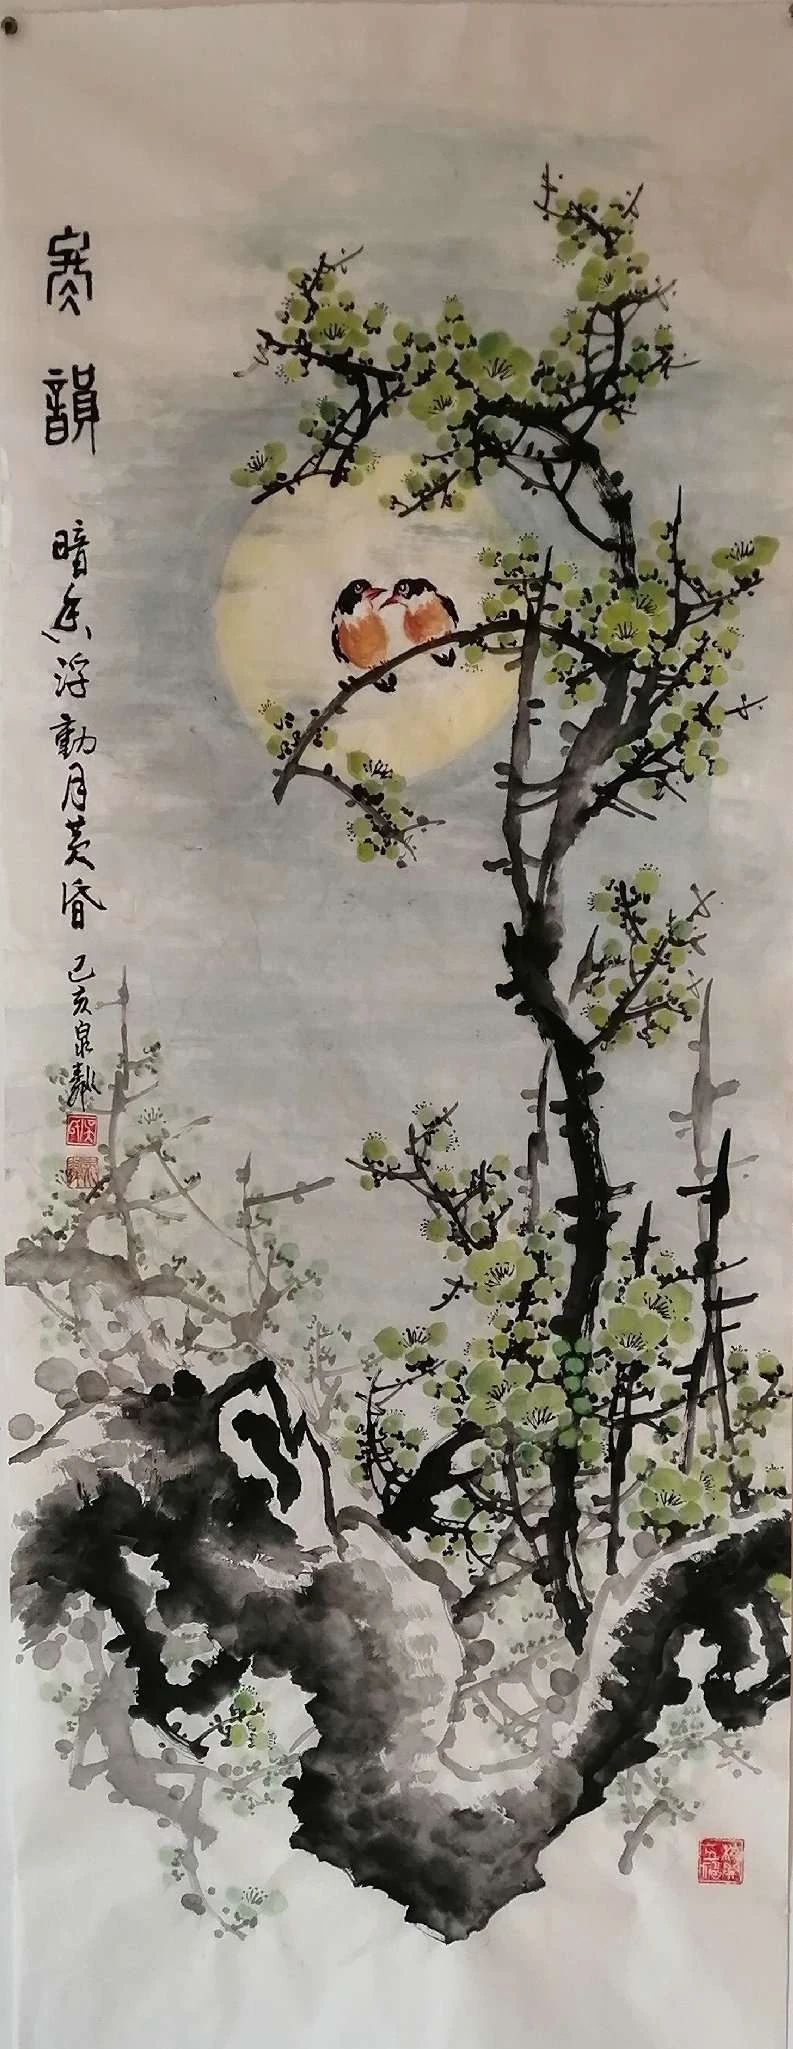 寒韻
暗香浮動月黄昏
己亥泉